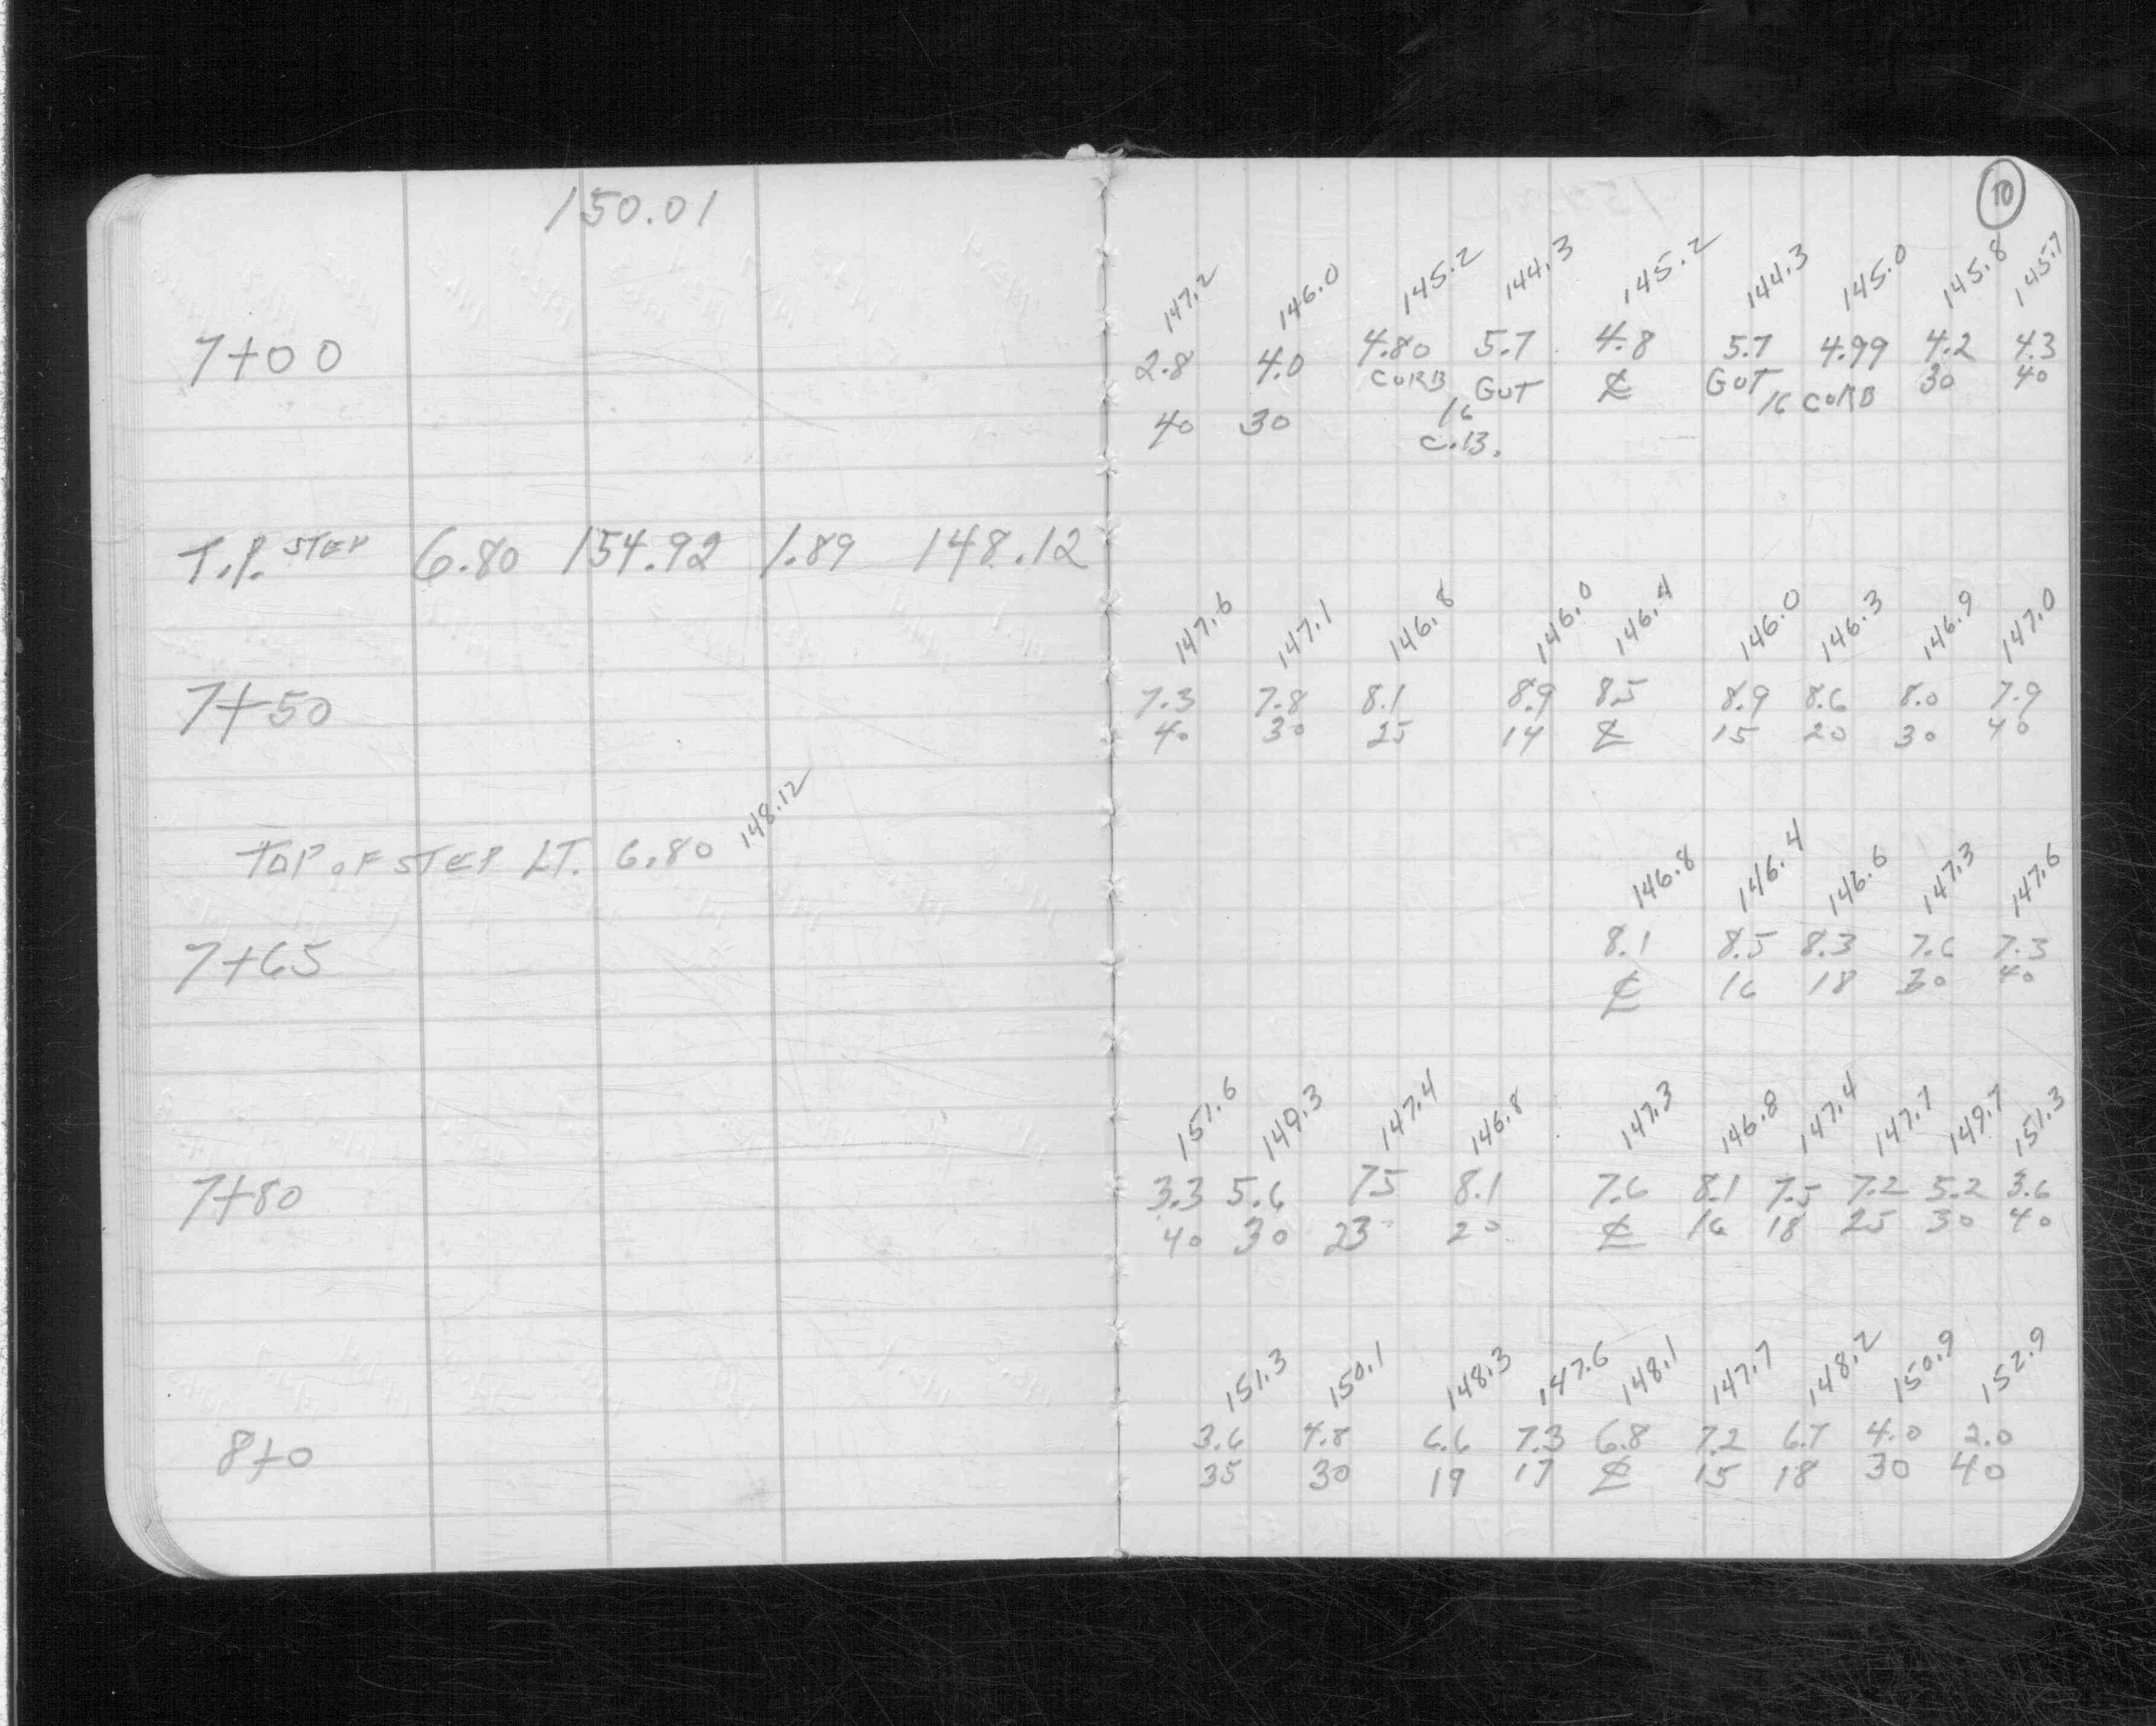 150.01
10
147.2 146.0 145.2 144.3 145.2 144.3 145.0 145.8 145.7
7+00 2.8 4.0 4.80 5.7 4.8 5.7 4.99 4.2 4.3
CURB GUT ℄ GUT 16 CURB 30 40
40 30 16
C.B.
T.P. STEP 6.80 154.92 1.89 148.12
147.6 147.1 146.8 146.0 146.4 146.0 146.3 146.9 147.0
7+50 7.3 7.8 8.1 8.9 8.5 8.9 8.6 8.0 7.9
40 30 25 14 ℄ 15 20 30 40
TOP OF STEP LT. 6.80 148.12
146.8 146.4 146.6 147.3 147.6
7+65 8.1 8.5 8.3 7.6 7.3
℄ 16 18 30 40
151.6 149.3 147.4 146.8 147.3 146.8 147.4 147.7 149.7 151.3
7+80 3.3 5.6 75 8.1 7.6 8.1 7.5 7.2 5.2 3.6
40 30 23 20 ℄ 16 18 25 30 40
151.3 150.1 148.3 147.6 148.1 147.7 148.2 150.9 152.9
8+0 3.6 4.8 6.6 7.3 6.8 7.2 6.7 4.0 2.0
35 30 19 17 ℄ 15 18 30 40